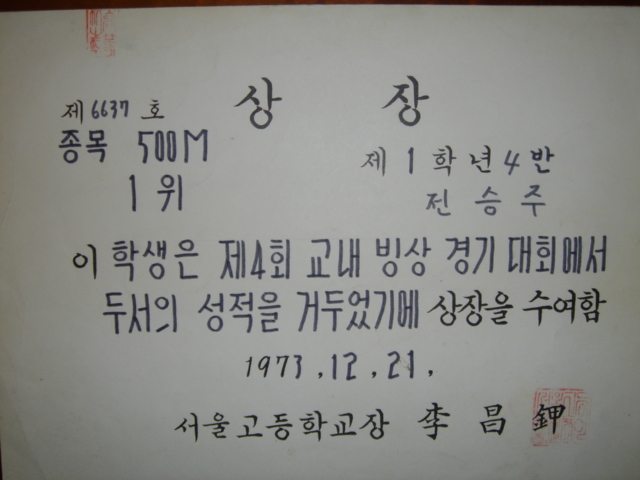 상 장
제 6637 호
종목 500M
1 위
제 1 학년 4 반
전 승 주
이 학생은 제4회 교내 빙상 경기 대회에서
두서의 성적을 거두었기에 상장을 수여함
1973. 12. 21.
서울고등학교장 李 昌 鉀